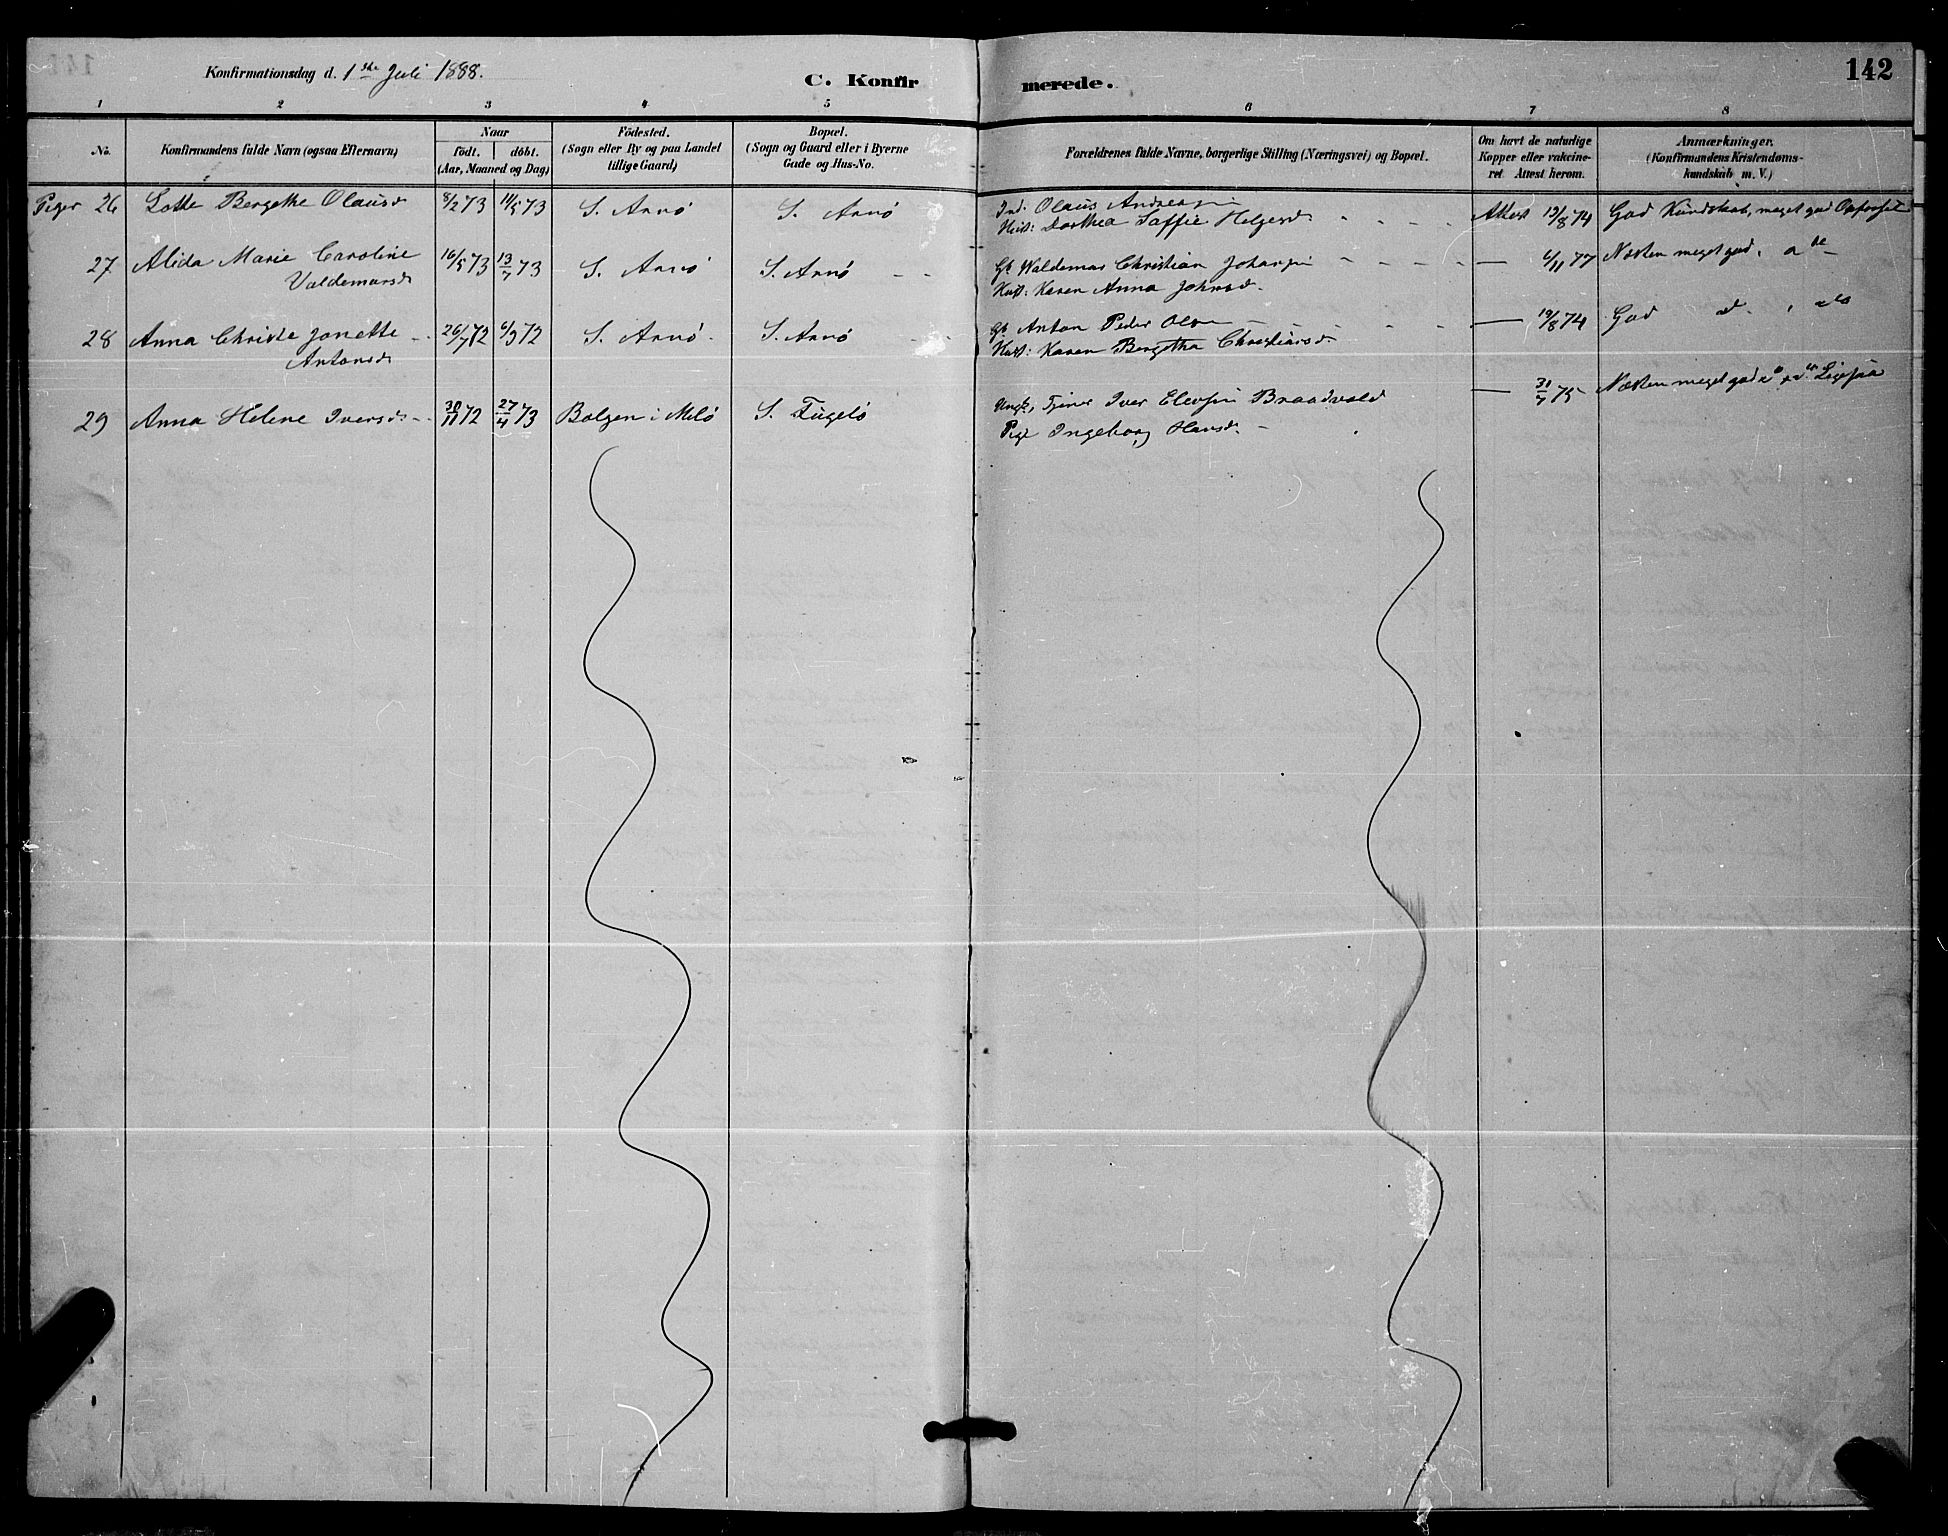 Konfirmationsdag d. 1ste Juli 1888.
C. Konfirmerede.
142
1 2 3 4 5 6 7 8
No.
Konfirmandens fulde Navn (ogsaa Efternavn)
Naar
födt. döbt.
(Aar, Maaned og Dag)
Födested.
(Sogn eller By og paa Landet
tillige Gaard)
Bopæl.
(Sogn og Gaard eller i Byerne
Gade og Hus-No.
Forældrenes fulde Navne, borgerlige Stilling (Næringsvei) og Bopæl.
Om havt de naturlige
Kopper eller vakcine-
ret Attest herom.
Anmærkninger.
(Konfirmandens Kristendoms-
kundskab m. V.)
Piger 26 Lotte Bergethe Olausd 8/2 73 11/5 73 S. Arnö S. Arnö
Ind. Olaus Andreasen
Hust: Dorthea Saffie Helgesd - - - Attest 19/8 74 God Kundskab, meget god Opførsel
27 Alida Marie Caroline
Valdemarsd 16/5 73 13/7 73 S. Arnö S. Arnö - -
Gb Waldemar Christian Johansen - - - - — 6/11 77 Næsten meget god,
Hust: Karen Anna Johnsd.
28 Anna Christe Jonette
Antonsd 26/7 72 6/9 72 S. Arnö. S. Arnö - -
Gb Anton Peder Olsen - - — 19/8 74 God do. , do
Hust: Karen Bergetha Christiansd
29 Anna Helene Iversd - 30/11 72 27/4 73 Bolgen i Melö S. Fugelö
Ungk, Tjener Iver Elevsen Braadvold — 31/7 75 Næsten meget god
Pige Ingeborg Hansd. -